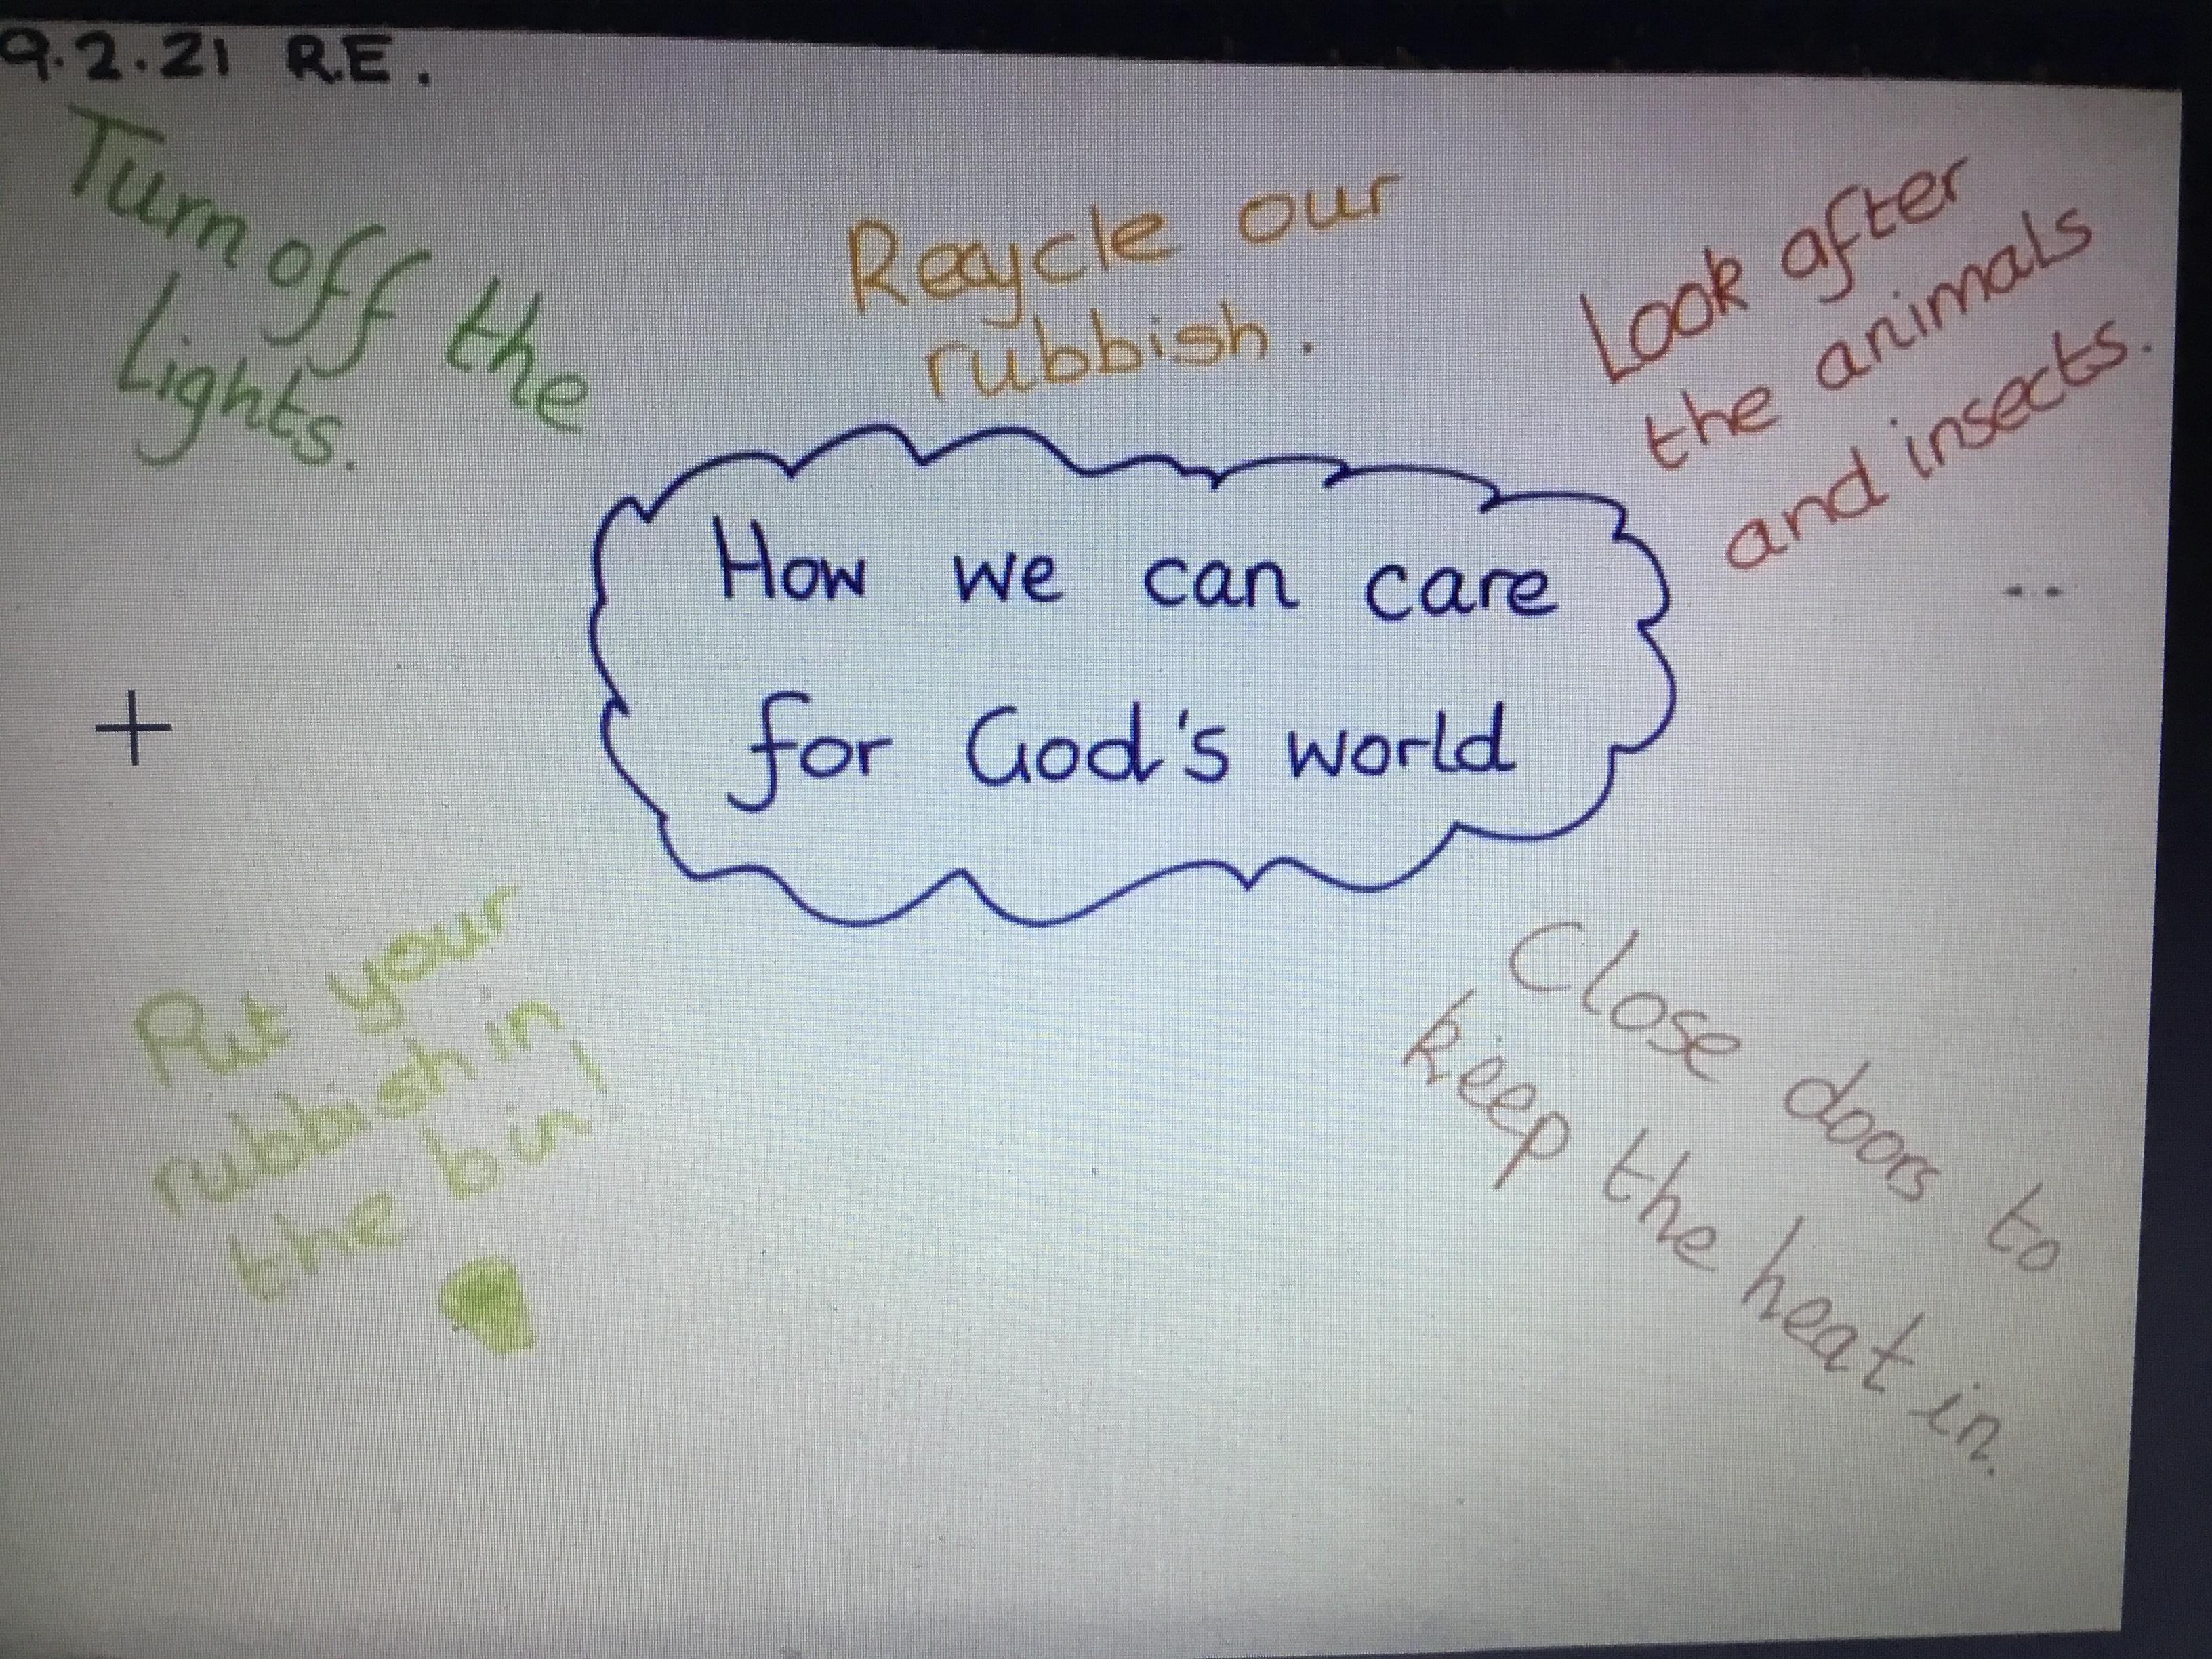 9.2.21 R.E.
Turn off the
Lights.
Recycle our
rubbish.
Look after
the animals
and insects.
How we can care
for God's world
Put your
rubbish in
the bin!
Close doors to
keep the heat in.